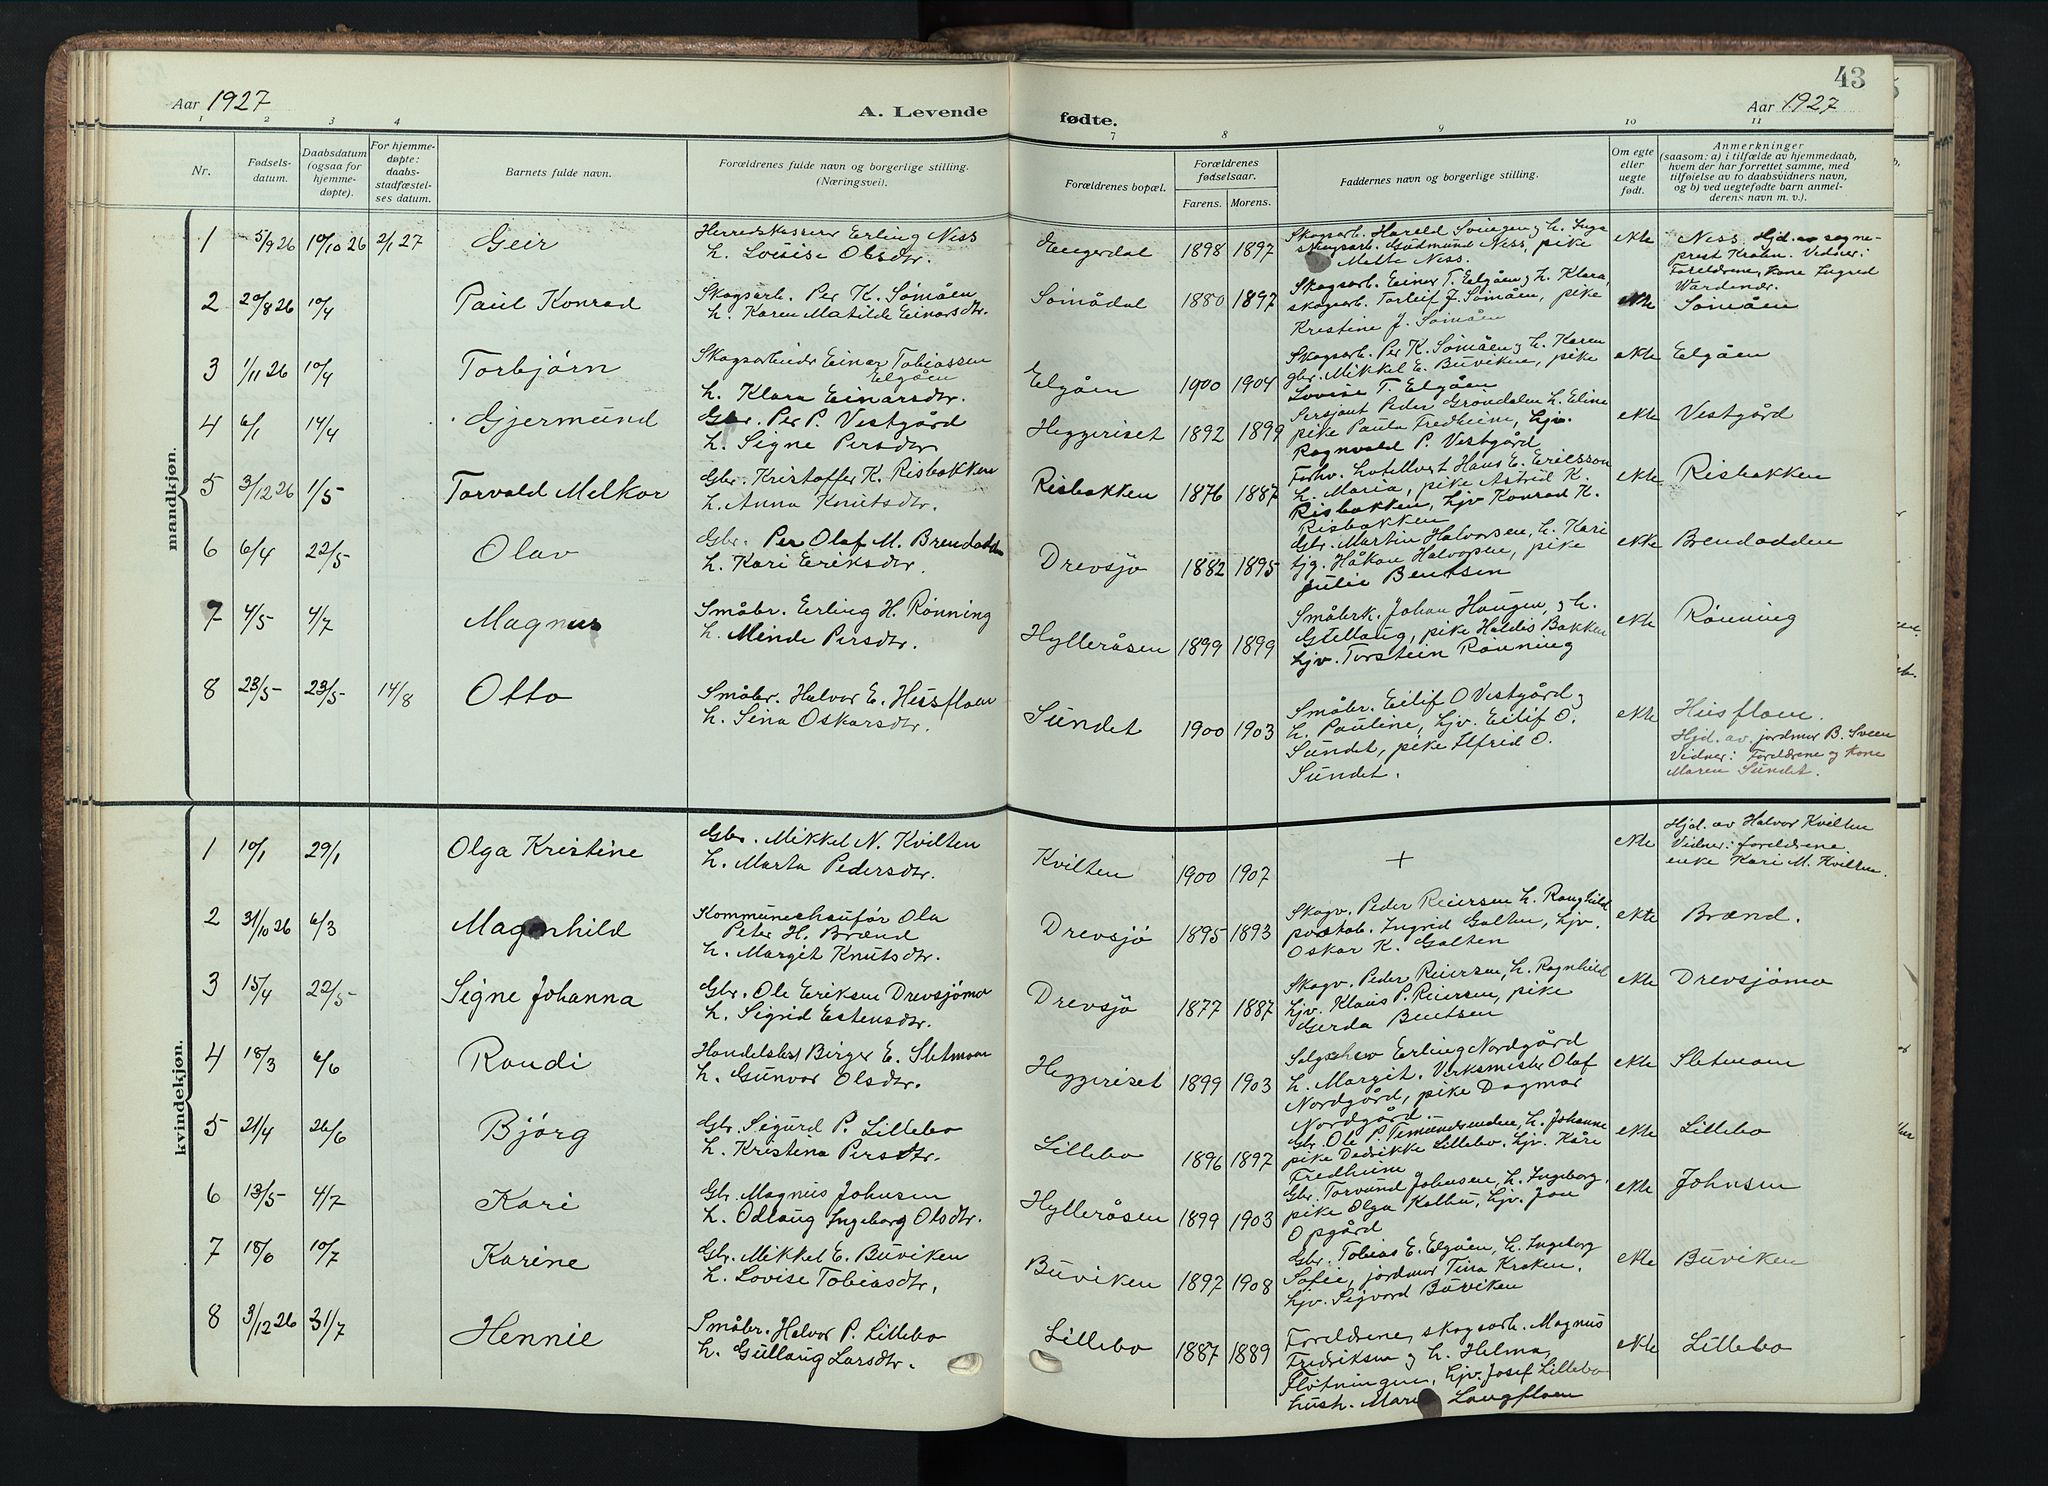 43
Aar 1927
A. Levende fødte.
Aar 1927
1 2 3 4 7 8 9 10 11
Nr.
Fødsels-
datum.
Daabsdatum
(ogsaa for
hjemme-
døpte).
For hjemme-
døpte:
daabs-
stadfæstel-
ses datum.
Barnets fulde navn.
Forældrenes fulde navn og borgerlige stilling.
(Næringsvei).
Forældrenes bopæl.
Forældrenes
fødselsaar.
Farens. Morens.
Faddernes navn og borgerlige stilling.
Om egte
eller
uegte
født.
Anmerkninger
(saasom: a) i tilfælde av hjemmedaab,
hvem der har forrettet samme, med
tilføielse av to daabsvidners navn,
og b) ved uegtefødte barn anmel-
derens navn m. v.).
mandkjøn.
1 5/9 26 10/10 26 2/1 27 Geir
Herredskasserer Erling Ness
h. Lovise Olsdtr.
Engerdal 1898 1897
Skogsarb. Harald Svingen & h. Inga
skogsarb. Gudmund Ness, pike
Mette Ness.
ekte
Ness. Hjd. av sogne-
prest Krohn. Vidner:
Foreldrene, kone Ingrid
Wardenær.
2 20/8 26 10/4 Paul Konrad
Skogsarb. Per K. Sømåen
h. Karen Matilde Einarsdtr.
Sømådal 1880 1897
Skogsarb. Einar T. Elgåen & h. Klara,
skogsarb. Torleif J. Sømåen, pike
Kristine J. Sømåen
ekte Sømåen
3 1/11 26 10/4 Torbjørn
Skogsarbeider Einar Tobiassen
Elgåen
h. Klara Einarsdtr.
Elgåen 1900 1904
Skogsarb. Per K. Sømåen & h. Karen
gbr. Mikkel E. Buviken, pike
Lovise T. Elgåen
ekte Elgåen
4 6/1 14/4 Gjermund
Gbr. Per P. Vestgård
h. Signe Persdtr
Heggeriset 1892 1899
Sersjant Peder Grøndalen h. Eline
pike Paula Fredheim, hjv.
Ragnvald P. Vestgård
ekte Vestgård
5 3/12 26 1/5- Torvald Melkor
Gbr. Kristoffer K. Risbakken
h. Anna Knutsdtr.
Risbakken 1876 1887
Forhv. hotellvert Hans E. Ericsson
h. Maria, pike Astrid K.
Risbakken, hjv Konrad K.
Risbakken
ekte Risbakken
6 6/4 22/5- Olav
Gbr. Per Olaf M. Brendodden
h. Kari Eriksdtr.
Drevsjø 1882 1895
Gbr. Martin Halvorsen, h. Kari
hjg. Håkon Halvorsen, pike
Julie Bentsen
ekte Brendodden
7 4/5- 4/7 Magnus
Småbr. Erling H. Rønning
h. Minda Persdtr.
Hylleråsen 1899 1899
Småbrk. Johan Haugen, & h.
Gullaug, pike Haldis Bakken
hjv. Torstein Rønning
ekte Rønning
8 23/5- 23/5- 14/8 Otto
Småbr. Halvor E. Husfloen
h. Sina Oskarsdtr.
Sundet 1900 1903
Småbr. Eilif O Vestgård &
h. Pauline, hjv. Eilif O.
Sundet, pike Alfrid O.
Sundet.
ekte
Husfloen.
Hjd. av. jordmor B. Sveen
Vidner: Foreldrene og kone
Maren Sundet.
kvindekjøn.
1 10/1 29/1 Olga Kristine
Gbr. Mikkel N. Kvilten
h. Marta Pedersdtr.
Kvilten 1900 1907
+
ekte
Hjd. av Halvor Kvilten
Vidner: foreldrene.
enke Kari M. Kvilten.
2 31/10 26 6/3 Magnhild
Kommunechaufør Ola
Peter H. Brænd
h. Margit Knutsdtr.
Drevsjø 1895 1893
Skogv. Peder Reiersen h. Ragnhild
postab. Ingrid Galten, hjv.
Oskar K. Galten
ekte Brænd.
3 15/4 22/5- Signe Johanna
Gbr. Ole Eriksen Drevsjømo
h. Sigrid Estensdtr.
Drevsjø 1877 1887
Skogv. Peder Reiersen, h. Ragnhild
hjv. Klaus P. Reiersen, pike
Gerda Bentsen
ekte Drevsjømo
4 18/3 6/6 Randi
Handelsbest Birger E. Sletmoen
h. Gunvor Olsdtr.
Heggeriset 1899 1903
Erling Nordgård
h. Margit. Verksmister Olaf
Nordgård, pike Dagmar
Nordgård.
ekte Sletmoen
5 21/4 26/6 Bjørg
Gbr. Sigurd P. Lillebo
h. Kristina Persdtr.
Lillebo 1896 1897
Gbr. Ole P. Femundsenden, h. Johanne
pike Dedrikke Lillebo. hjv. Kåre
Fredheim
ekte Lillebo
6 13/5- 4/7 Kari
Gbr. Magnus Johnsen
h. Odlaug Ingeborg Olsdtr.
Hylleråsen 1899 1903
Gbr. Torvund Johnsen, h. Ingeborg,
pike Olga Kolbu, hjv. Jon
Opgård
ekte Johnsen
7 18/6 10/7 Karine
Gbr. Mikkel E. Buviken
h. Lovise Tobiasdtr.
Buviken 1897 1908
Gbr. Tobias E. Elgåen, h. Ingeborg
Sofie, jordmor Tina Kroken,
hjv. Sigvard Buviken
ekte Buviken
8 3/12 26 31/7 Hennie
Småbr. Halvor P. Lillebo
h. Gullaug Larsdtr.
Lillebo 1887 1889
Foreldrene, skogsarb. Magnus
Fredriksen & h. Helma,
Fløtningen, hjv. Josef Lillebo
hush. Marie Langfloen
ekte Lillebo